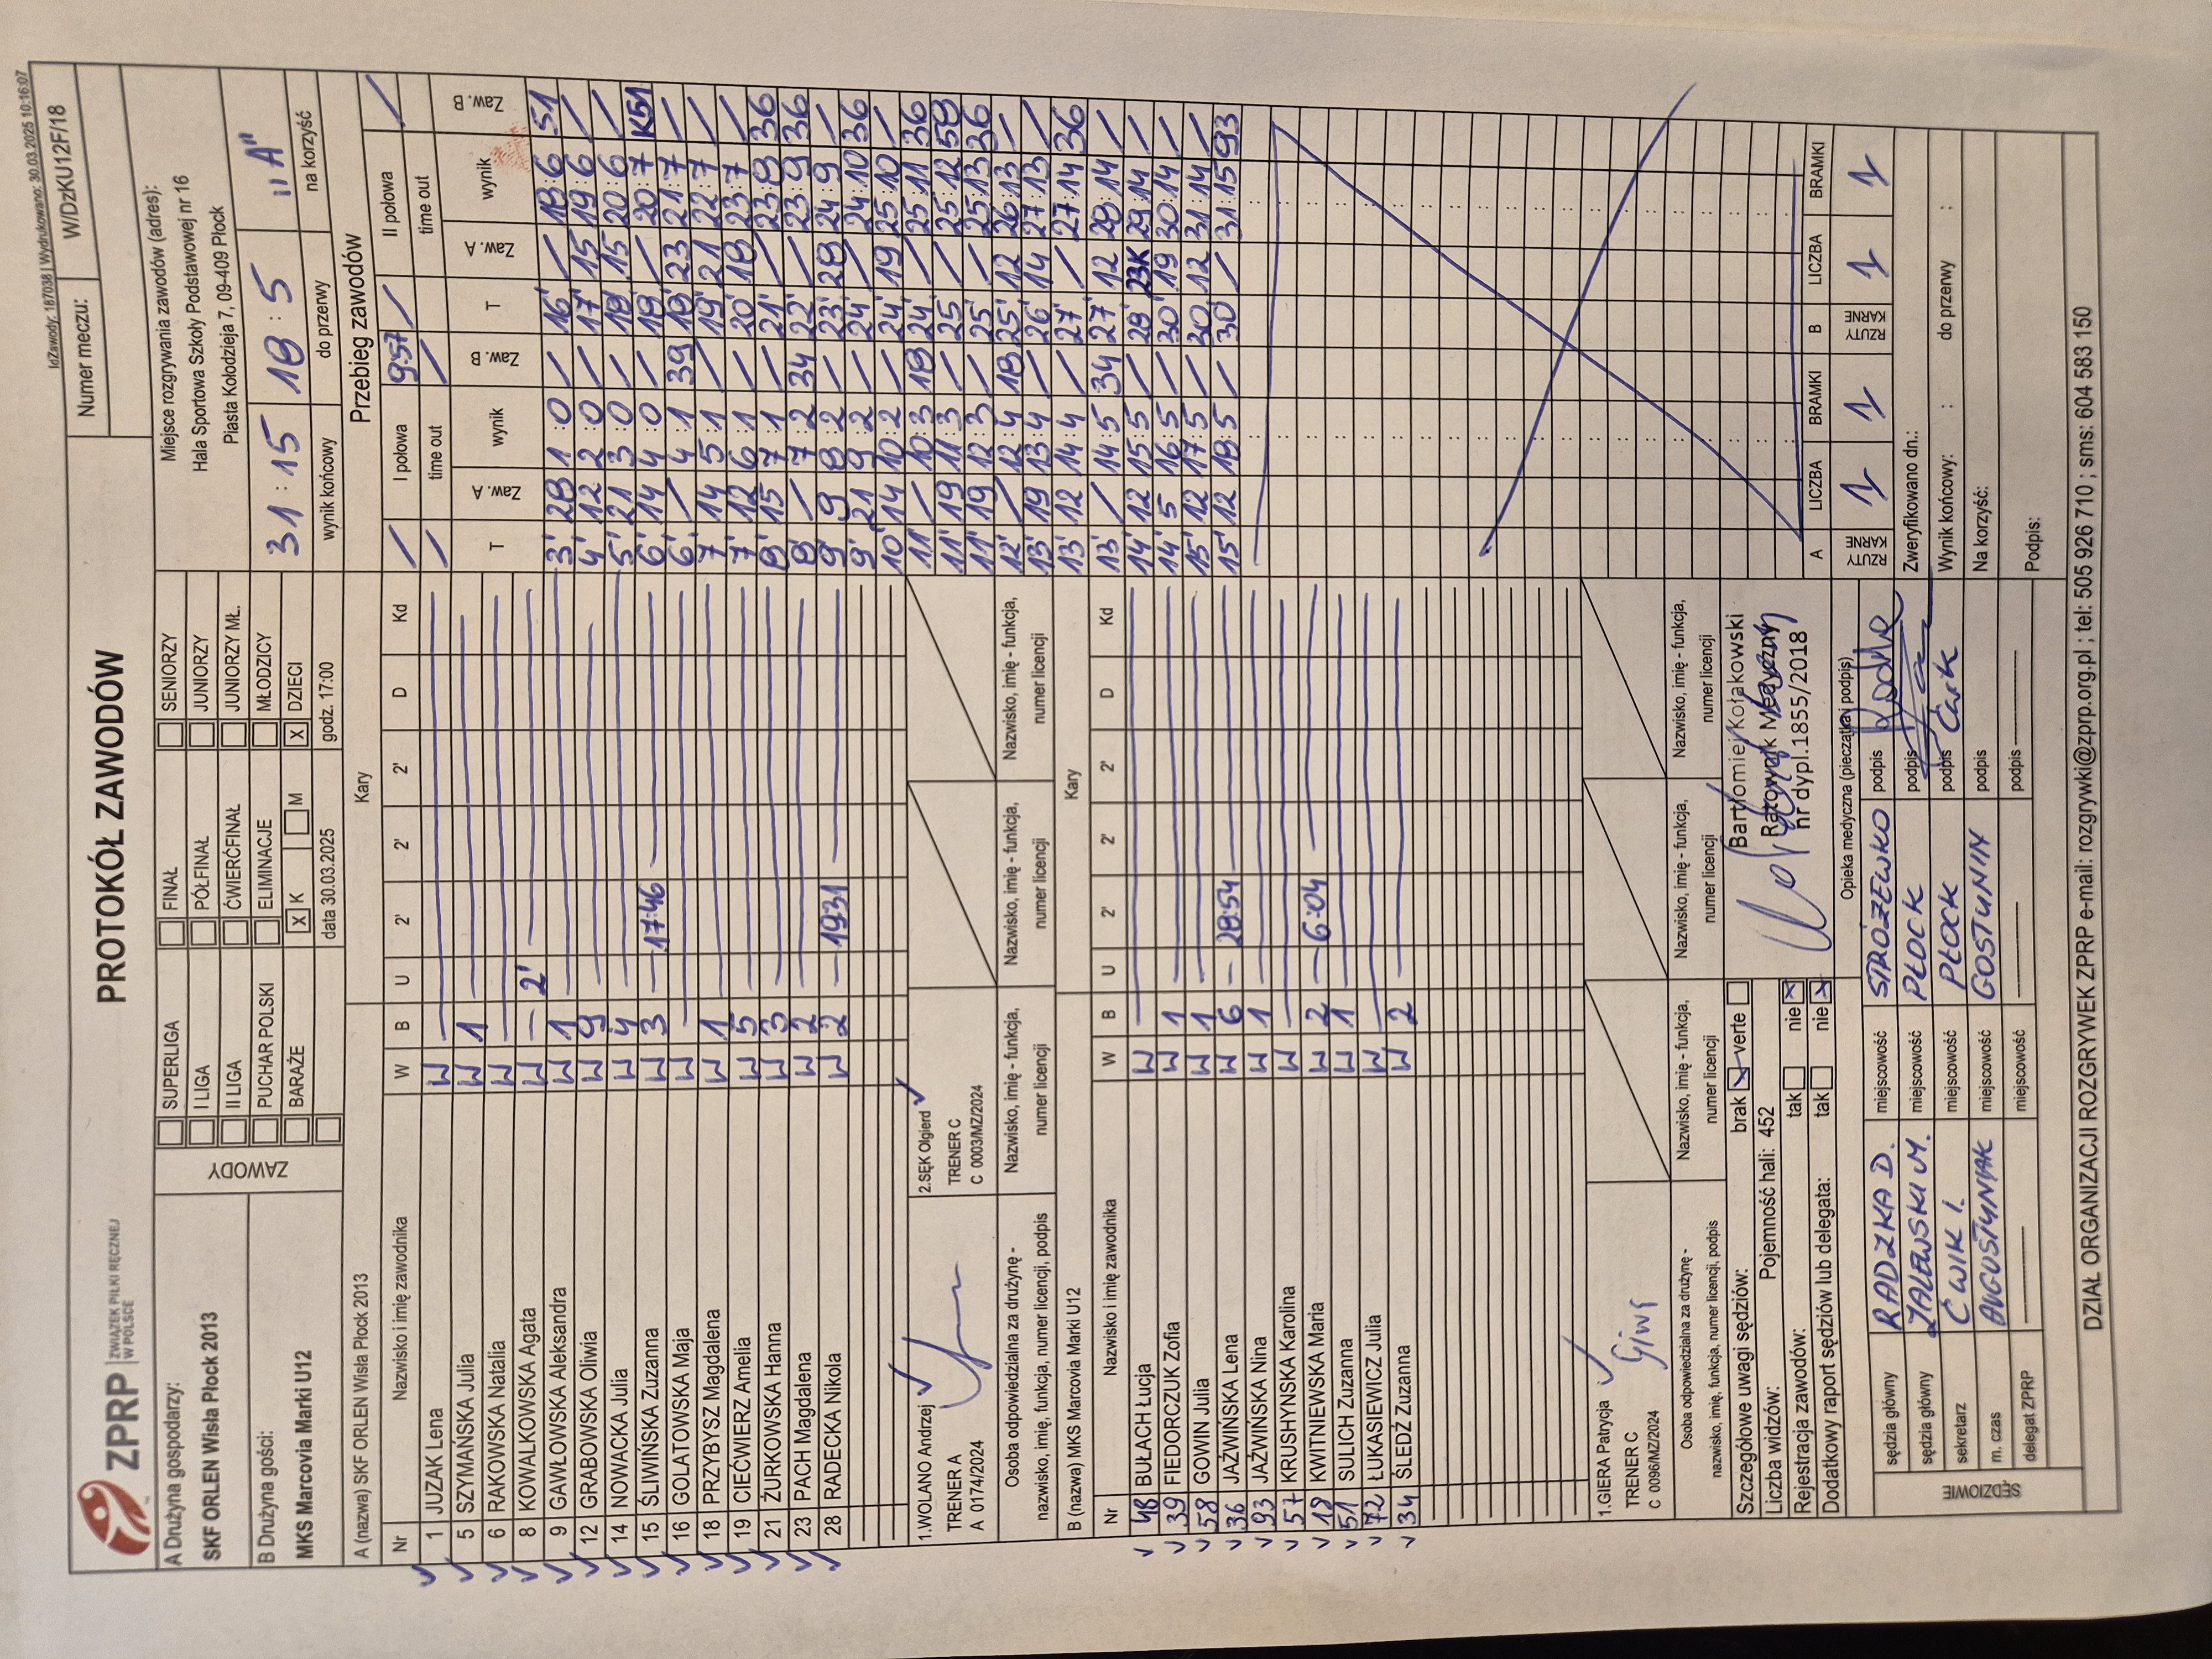 IdZawody: 187038 | Wydrukowano: 30.03.2025 10:16:07
ZPRP ZWIĄZEK PIŁKI RĘCZNEJ W POLSCE
PROTOKÓŁ ZAWODÓW
Numer meczu: W/DzKU12F/18
A Drużyna gospodarzy:
SKF ORLEN Wisła Płock 2013
B Drużyna gości:
MKS Marcovia Marki U12
ZAWODY
SUPERLIGA FINAŁ SENIORZY
I LIGA PÓŁFINAŁ JUNIORZY
II LIGA ĆWIERĆFINAŁ JUNIORZY MŁ.
PUCHAR POLSKI ELIMINACJE MŁODZICY
BARAŻE X K M X DZIECI
data 30.03.2025 godz. 17:00
Miejsce rozgrywania zawodów (adres):
Hala Sportowa Szkoły Podstawowej nr 16
Piasta Kołodzieja 7, 09-409 Płock
31 : 15 18 : 5 "A"
wynik końcowy do przerwy na korzyść
A (nazwa) SKF ORLEN Wisła Płock 2013 Kary
Nr Nazwisko i imię zawodnika W B U 2' 2' 2' D Kd
1 JUZAK Lena W
5 SZYMAŃSKA Julia W 1
6 RAKOWSKA Natalia W
8 KOWALKOWSKA Agata W – 2'
9 GAWŁOWSKA Aleksandra W 1
12 GRABOWSKA Oliwia W 9
14 NOWACKA Julia W 4
15 ŚLIWIŃSKA Zuzanna W 3 – 17:46
16 GOLATOWSKA Maja W
18 PRZYBYSZ Magdalena W 1
19 CIEĆWIERZ Amelia W 5
21 ŻURKOWSKA Hanna W 3
23 PACH Magdalena W 2
28 RADECKA Nikola W 2 – 19:31
1.WOLANO Andrzej
TRENER A
A 0174/2024
2.SĘK Olgierd
TRENER C
C 0003/MZ/2024
Osoba odpowiedzialna za drużynę -
nazwisko, imię, funkcja, numer licencji, podpis
Nazwisko, imię - funkcja,
numer licencji
Nazwisko, imię - funkcja,
numer licencji
Nazwisko, imię - funkcja,
numer licencji
B (nazwa) MKS Marcovia Marki U12 Kary
Nr Nazwisko i imię zawodnika W B U 2' 2' 2' D Kd
48 BUŁACH Łucja W
39 FIEDORCZUK Zofia W 1
58 GOWIN Julia W 1
36 JAŹWIŃSKA Lena W 6 – 28:54
93 JAŹWIŃSKA Nina W 1
57 KRUSHYNSKA Karolina W
18 KWITNIEWSKA Maria W 2 – 6:04
51 SULICH Zuzanna W 1
72 ŁUKASIEWICZ Julia W
34 ŚLEDŹ Zuzanna W 2
1.GIERA Patrycja
TRENER C
C 0096/MZ/2024
Osoba odpowiedzialna za drużynę -
nazwisko, imię, funkcja, numer licencji, podpis
Nazwisko, imię - funkcja,
numer licencji
Nazwisko, imię - funkcja,
numer licencji
Nazwisko, imię - funkcja,
numer licencji
Szczegółowe uwagi sędziów: brak verte
Liczba widzów: Pojemność hali: 452
Rejestracja zawodów: tak nie
Dodatkowy raport sędziów lub delegata: tak nie
Bartłomiej Kołakowski
Ratownik Medyczny
nr dypl.1855/2018
Opieka medyczna (pieczątka i podpis)
SĘDZIOWIE
sędzia główny RADZKA D. miejscowość STRÓŻEWKO podpis
sędzia główny ZALEWSKI M. miejscowość PŁOCK podpis
sekretarz ĆWIK I. miejscowość PŁOCK podpis Ćwik
m. czas AUGUSTYNIAK miejscowość GOSTYNIN podpis
delegat ZPRP miejscowość podpis
Przebieg zawodów
I połowa 9:57 II połowa
time out time out
T Zaw. A wynik Zaw. B T Zaw. A wynik Zaw. B
3' 28 1 : 0 / 16' / 18 : 6 51
4' 12 2 : 0 / 17' 15 19 : 6 /
5' 21 3 : 0 / 18' 15 20 : 6 /
6' 14 4 : 0 / 18' / 20 : 7 K51
6' / 4 : 1 39 19' 23 21 : 7 /
7' 14 5 : 1 / 19' 21 22 : 7 /
7' 12 6 : 1 / 20' 18 23 : 7 /
8' 15 7 : 1 / 21' / 23 : 8 36
8' / 7 : 2 34 22' / 23 : 9 36
9' 9 8 : 2 / 23' 28 24 : 9 /
9' 21 9 : 2 / 24' / 24 : 10 36
10' 14 10 : 2 / 24' 19 25 : 10 /
11' / 10 : 3 18 24' / 25 : 11 36
11' 19 11 : 3 / 25' / 25 : 12 58
11' 19 12 : 3 / 25' / 25 : 13 36
12' / 12 : 4 18 25' 12 26 : 13 /
13' 19 13 : 4 / 26' 14 27 : 13 /
13' 12 14 : 4 / 27' / 27 : 14 36
13' / 14 : 5 34 27' 12 28 : 14 /
14' 12 15 : 5 / 28' 23K 29 : 14 /
14' 5 16 : 5 / 30' 19 30 : 14 /
15' 12 17 : 5 / 30' 12 31 : 14 /
15' 12 18 : 5 / 30' / 31 : 15 93
A LICZBA BRAMKI B LICZBA BRAMKI
RZUTY KARNE 1 1 RZUTY KARNE 1 1
Zweryfikowano dn.:
Wynik końcowy: : do przerwy :
Na korzyść:
Podpis:
DZIAŁ ORGANIZACJI ROZGRYWEK ZPRP e-mail: rozgrywki@zprp.org.pl ; tel: 505 926 710 ; sms: 604 583 150